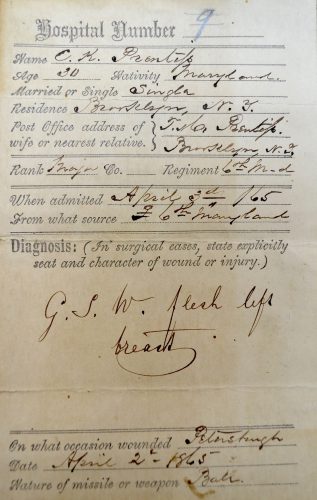 Hospital Number 9
Name C. K. Prentiss
Age 30 Nativity Maryland
Married or Single Single
Residence Brooklyn, N. Y.
Post Office address of
wife or nearest relative. Prentiss
Brooklyn N. Y.
Rank Major Co. Regiment 6th Md
When admitted April 3rd 1865
From what source 6th Maryland
Diagnosis: (In surgical cases, state explicitly
seat and character of wound or injury.)
G. S. W. flesh left
breast
On what occasion wounded Petersburgh
Date April 2d 1865
Nature of missile or weapon Ball